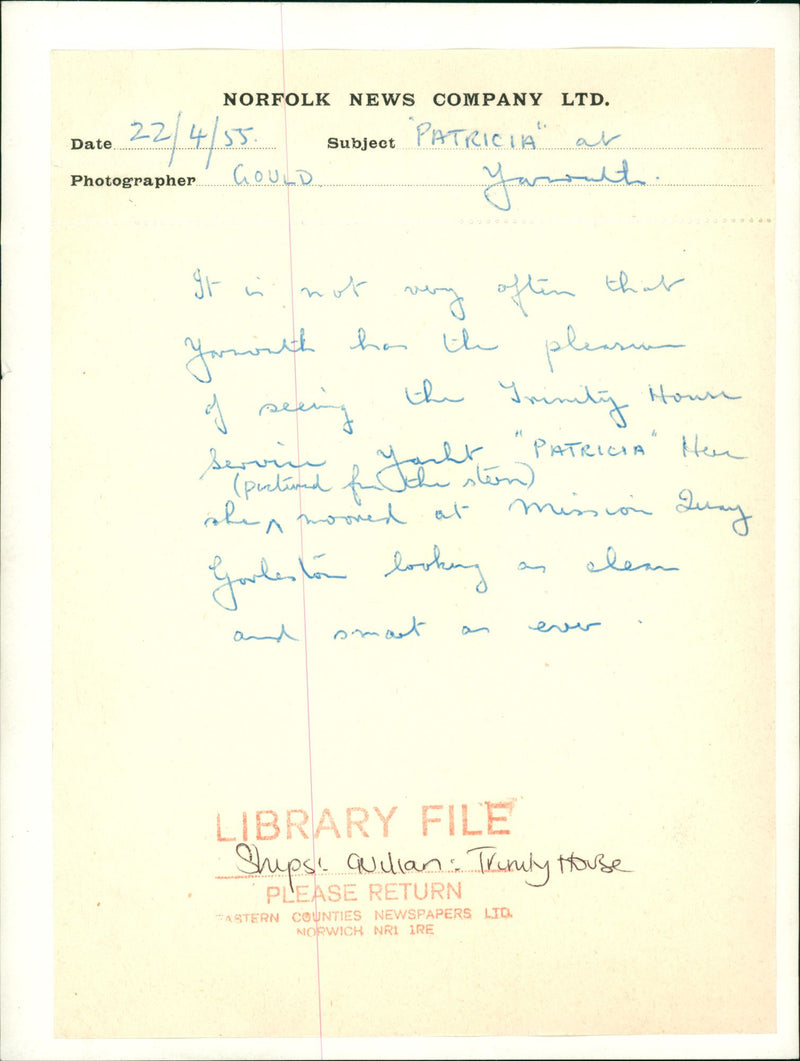 NORFOLK NEWS COMPANY LTD.
Date 22/4/55. Subject "PATRICIA" at
Photographer GOULD Yarmouth.
It is not very often that
Yarmouth has the pleasure
of seeing the Trinity House
Service Yacht "PATRICIA" Here
(pictured from the stern)
she ^ moored at Mission Quay
Gorleston looking as clean
and smart as ever.
LIBRARY FILE
Ships:- Civilian:- Trinity House
PLEASE RETURN
EASTERN COUNTIES NEWSPAPERS LTD.
NORWICH NR1 1RE